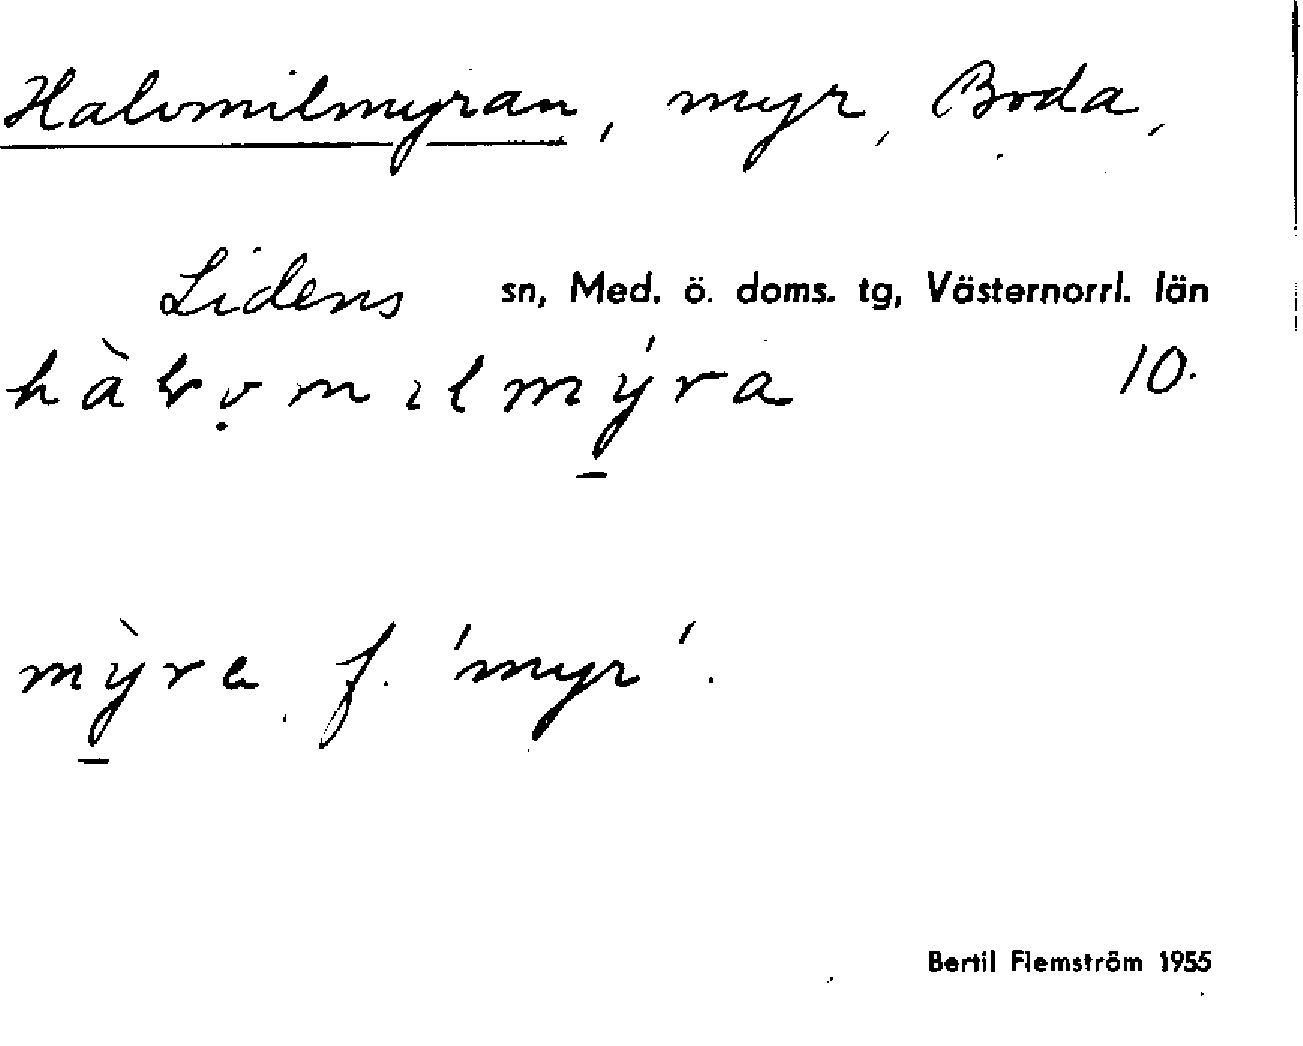 Halvmilmyran, myr, Boda,
Lidens sn, Med. ö. doms. tg, Västernorrl. län
hàlvmılmý̱ra 10.
mỳ̱ra f. 'myr'.
Bertil Flemström 1955